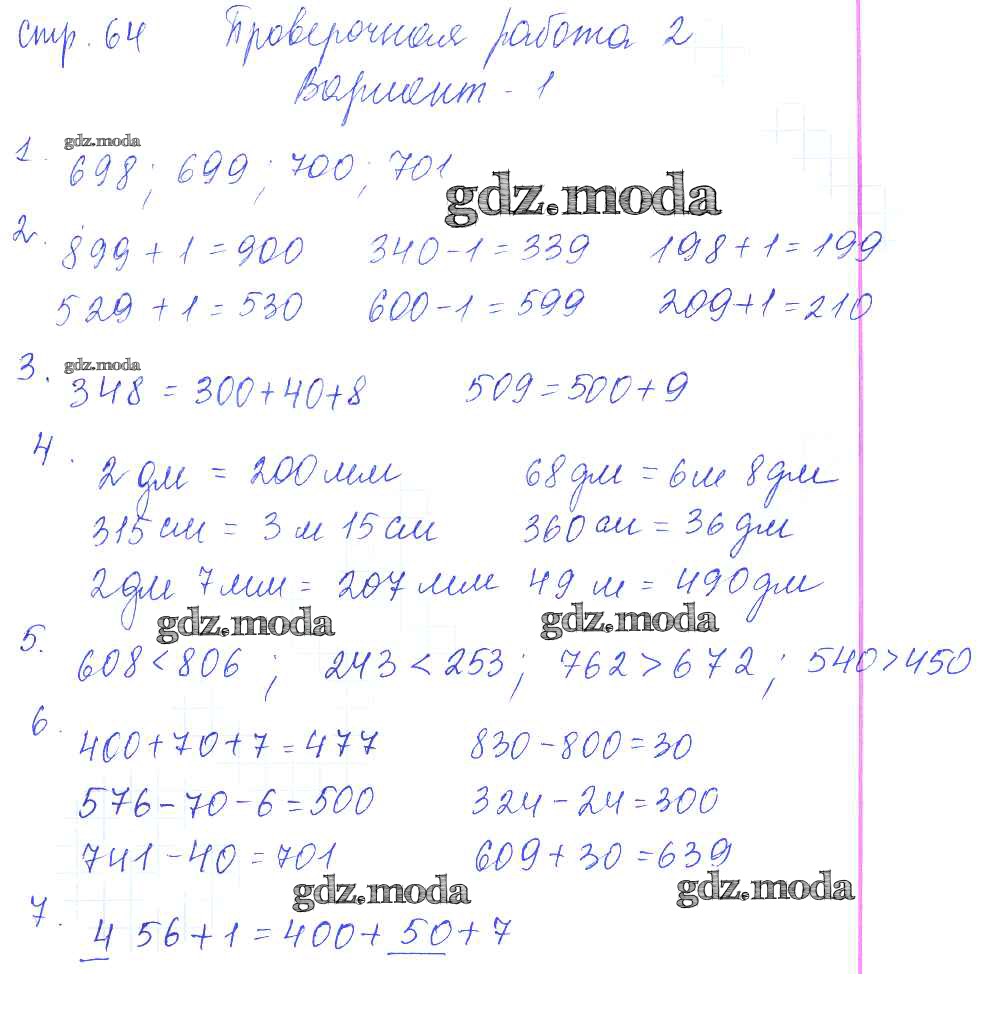 стр. 64 Проверочная работа 2
Вариант - 1
gdz.moda
1. 698; 699; 700; 701
gdz.moda
2. 899 + 1 = 900 340 - 1 = 339 198 + 1 = 199
529 + 1 = 530 600 - 1 = 599 209 + 1 = 210
gdz.moda
3. 348 = 300 + 40 + 8 509 = 500 + 9
4. 2 дм = 200 мм 68 дм = 6 м 8 дм
315 см = 3 м 15 см 360 см = 36 дм
2 дм 7 мм = 207 мм 49 м = 490 дм
gdz.moda gdz.moda
5. 608 < 806 ; 243 < 253 ; 762 > 672 ; 540 > 450
6. 400 + 70 + 7 = 477 830 - 800 = 30
576 - 70 - 6 = 500 324 - 24 = 300
741 - 40 = 701 609 + 30 = 639
gdz.moda gdz.moda
7. 4 56 + 1 = 400 + 50 + 7